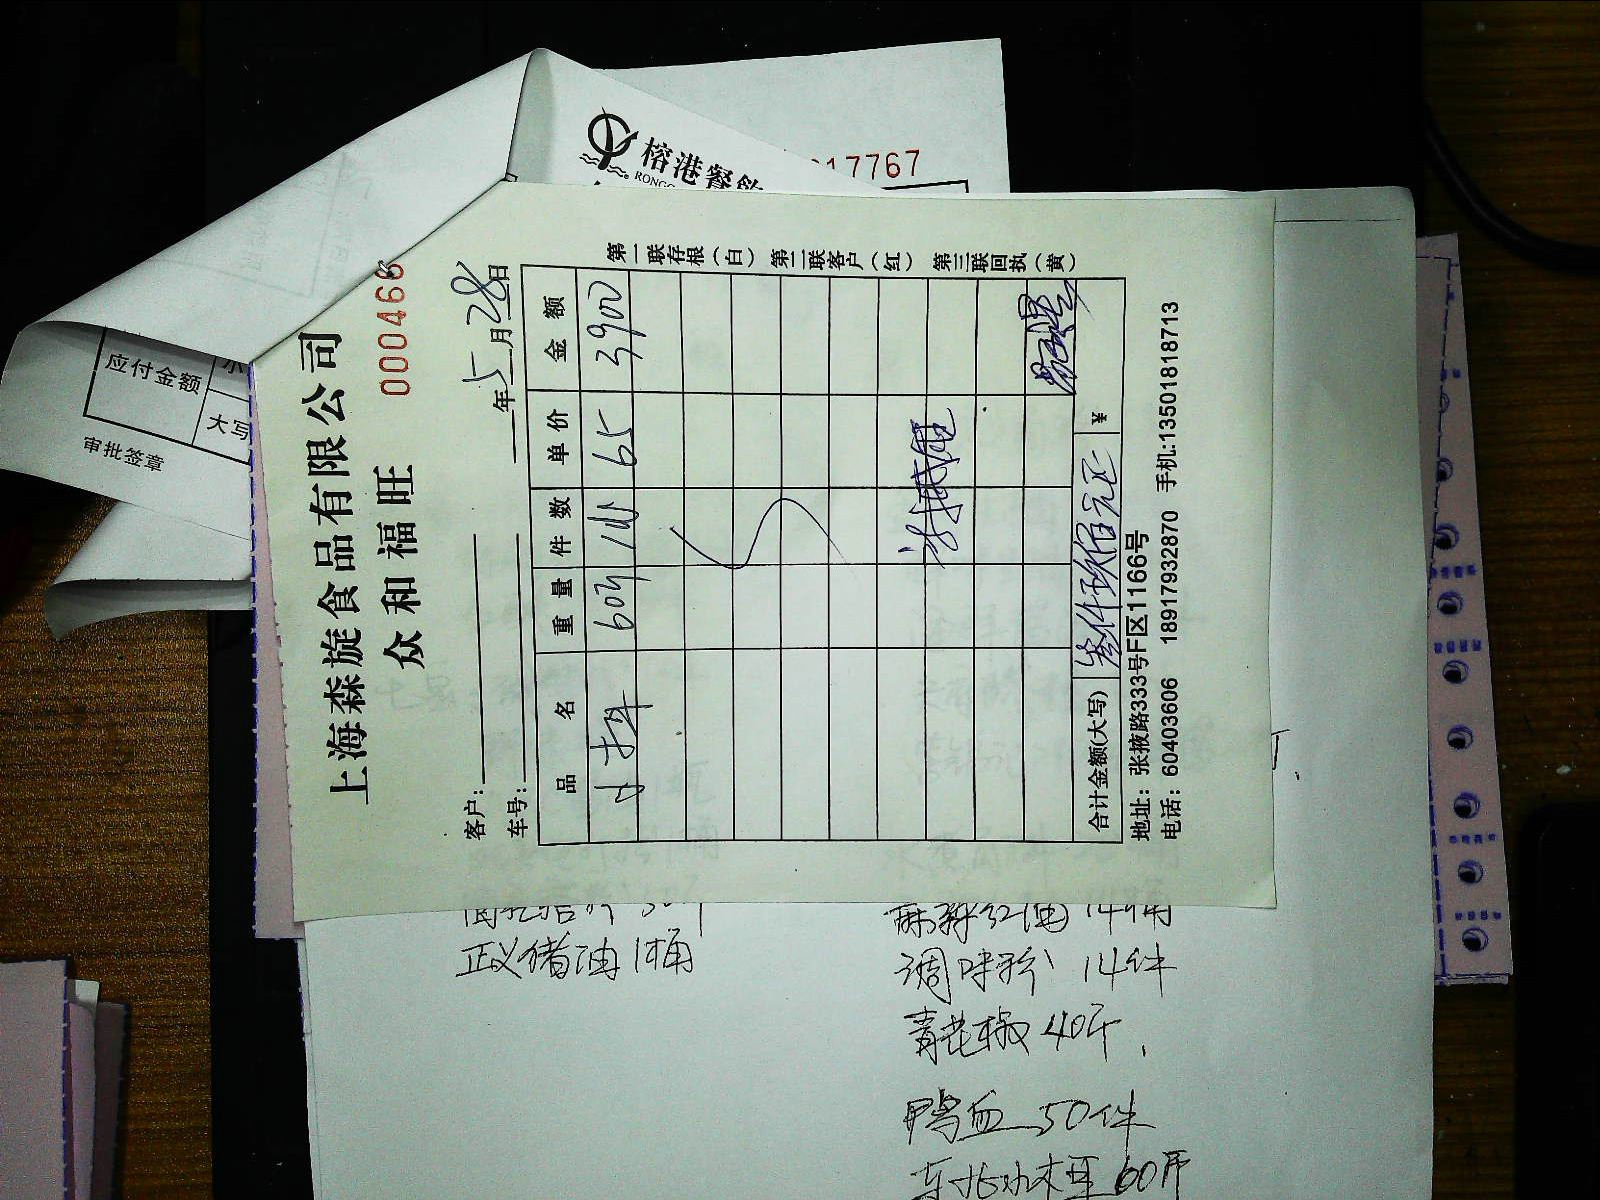 榕港餐飲
17767
应付金额
大写
审批签章
上海森旋食品有限公司
众和福旺
000466
客户:
年5月28日
车号:
品名 重量 件数 单价 金额
60 65 3900
合计金额(大写) 叁仟玖佰元正 ¥
地址: 张掖路333号F区1166号
电话: 60403606 18917932870 手机:13501818713
第一联存根(白) 第二联客户(红) 第三联回执(黄)
正义猪油 1桶
麻辣红油 14桶
调味粉 14件
青花椒 40斤
鸭血 50件
60斤